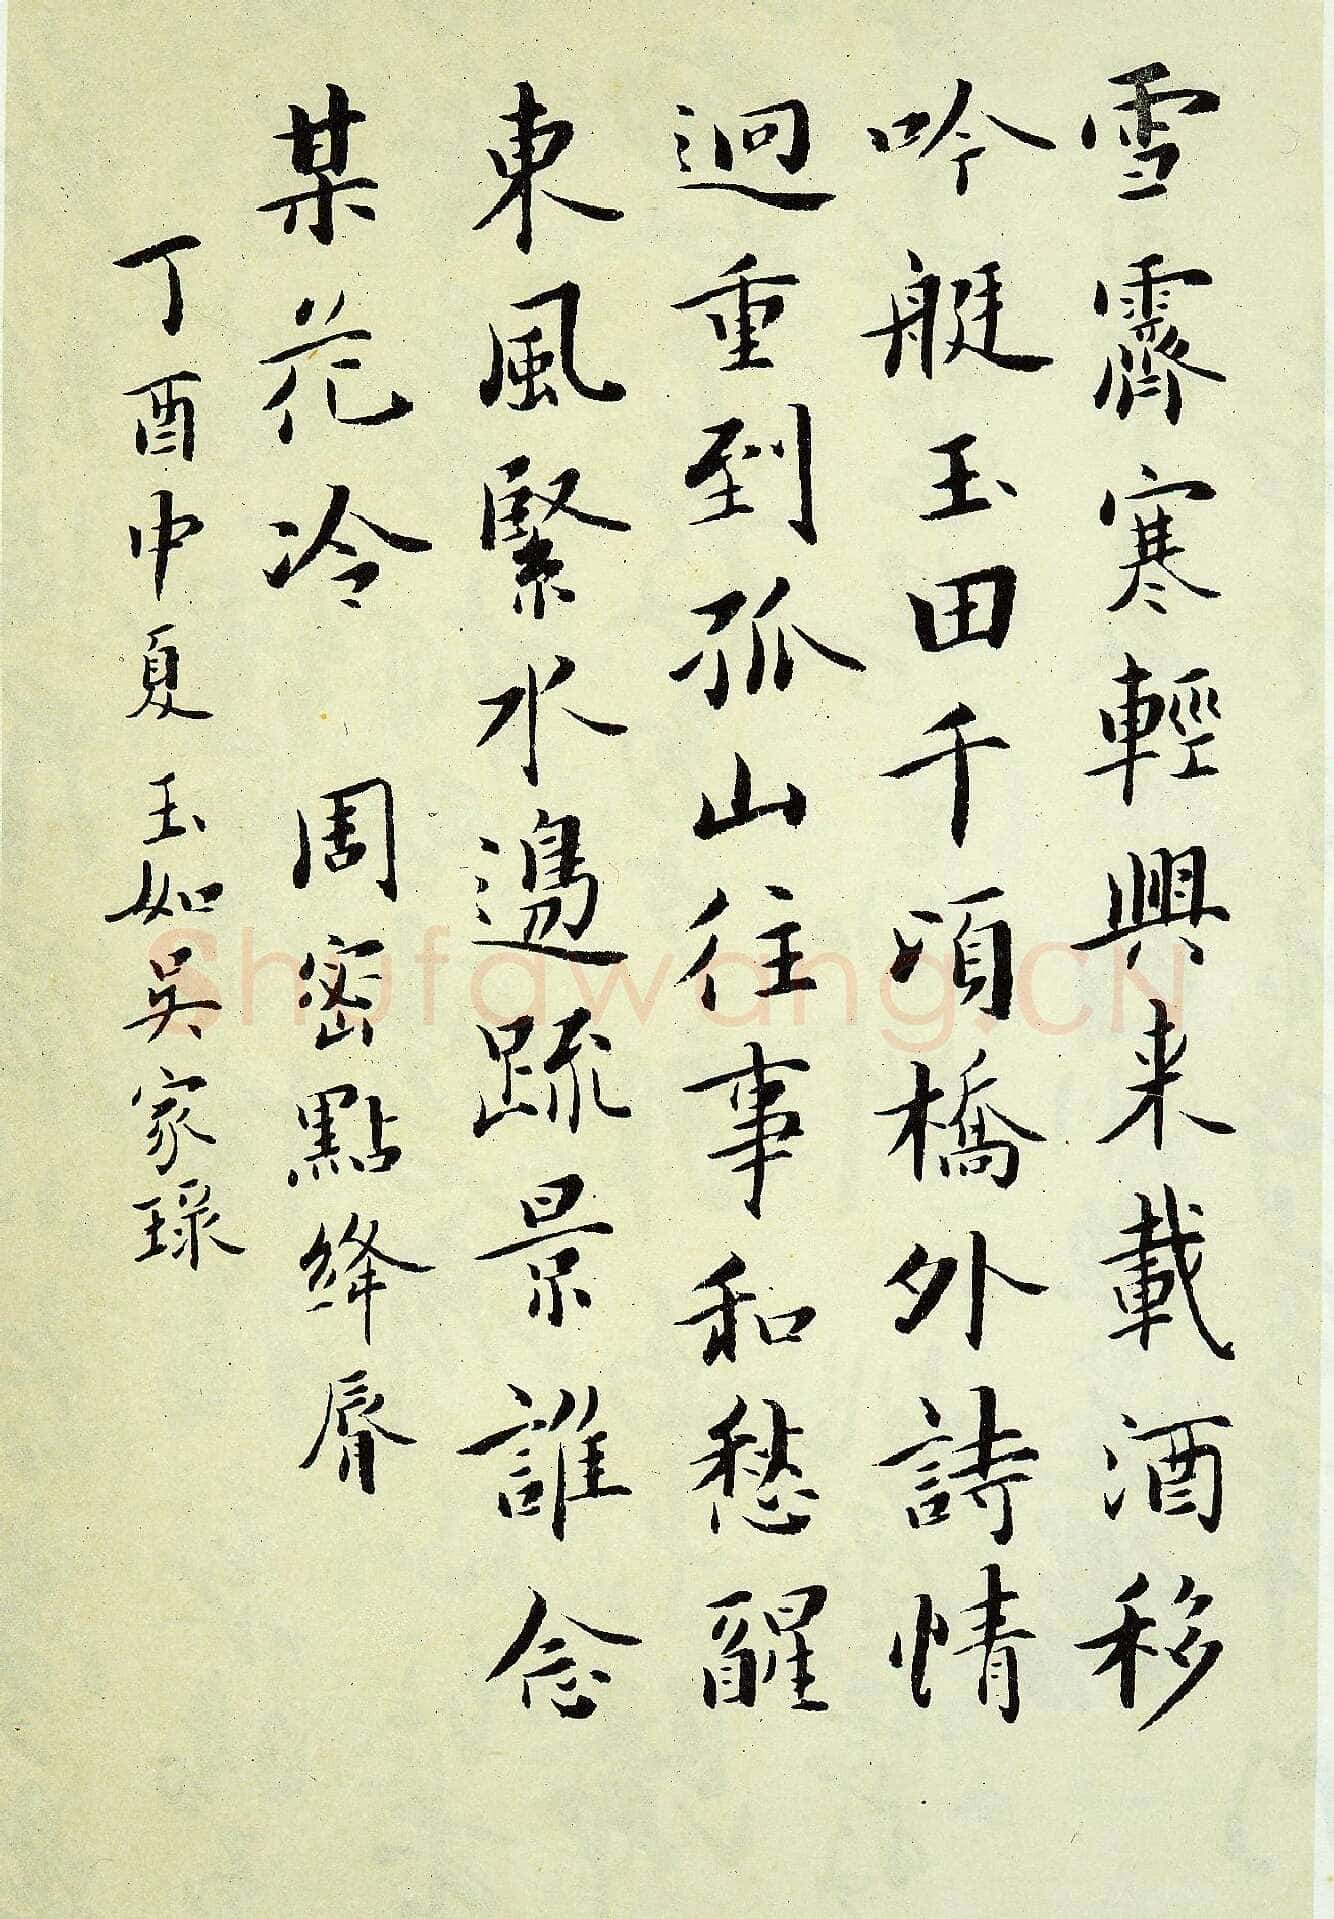 雪霽寒輕興来載酒移
吟艇玉田千頃橋外詩情
迥重到孤山往事和愁醒
東風緊水邊疏景誰念
某花冷 周密點絳脣
丁酉中夏玉如吳家琭
Shufawang.CN